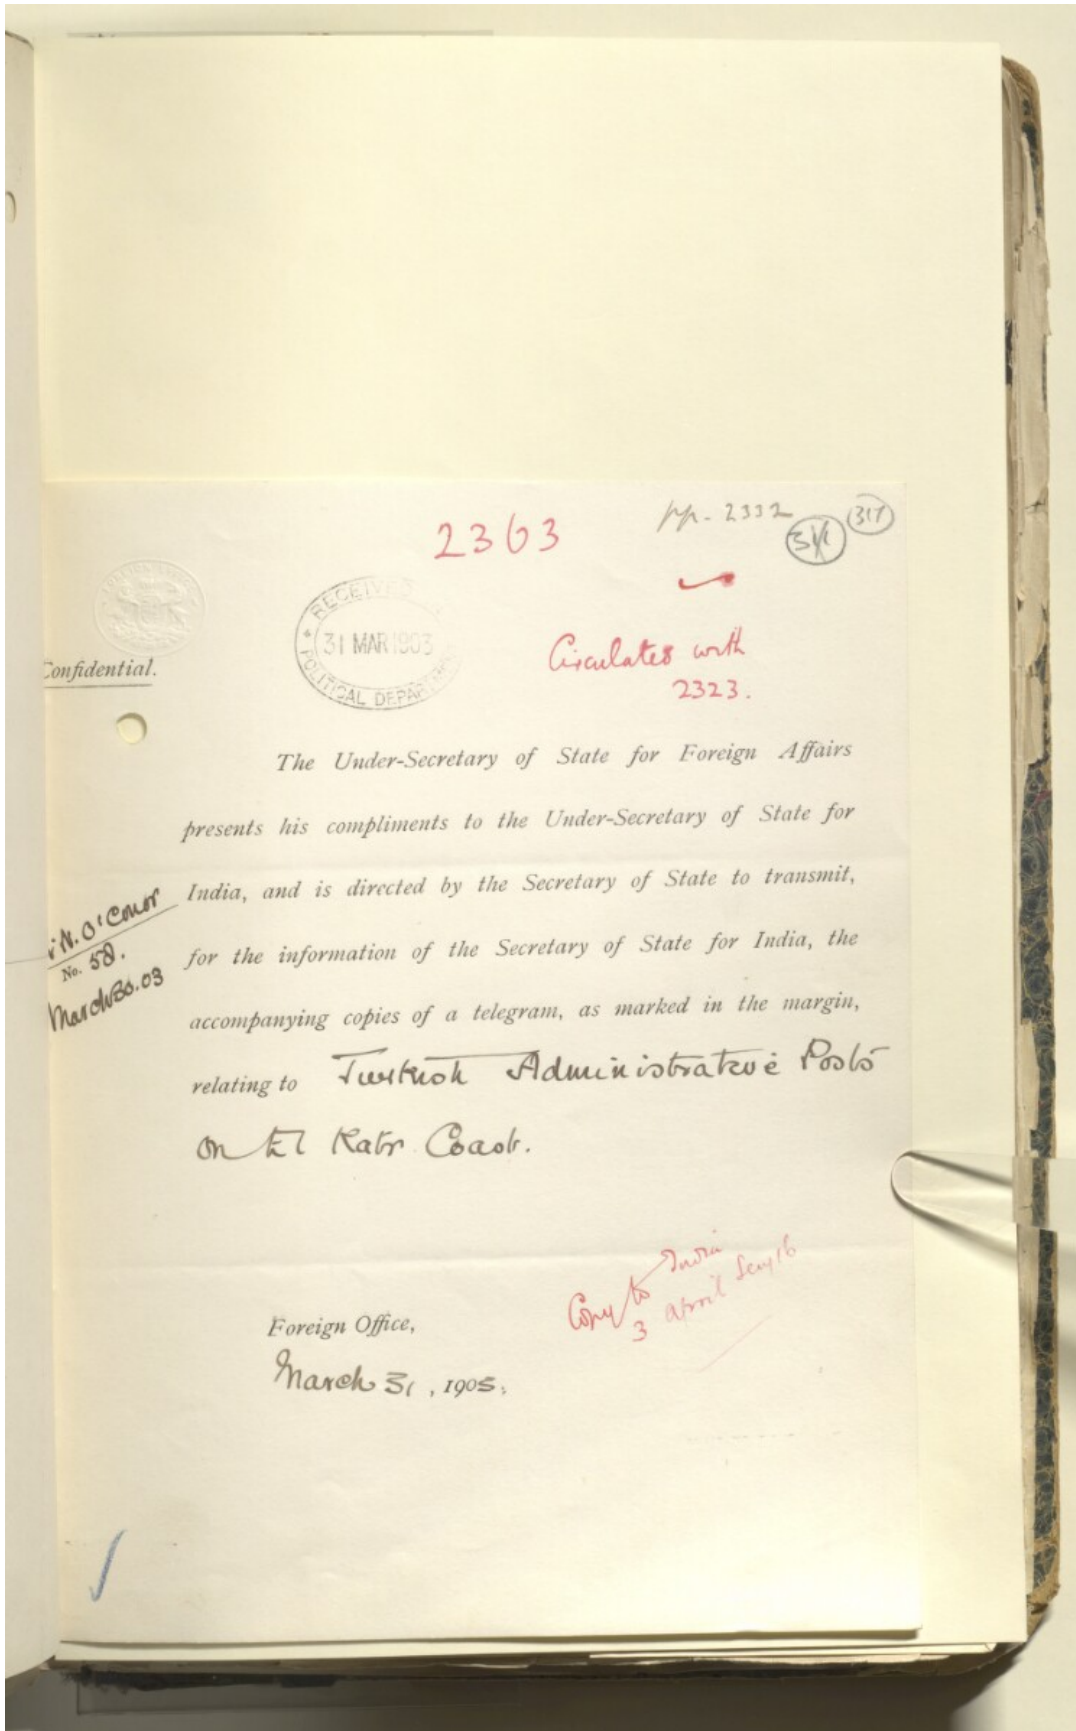 2363
pp. 2332
317
RECEIVED
31 MAR 1903
POLITICAL DEPARTMENT
Confidential.
Circulates with
2323.
The Under-Secretary of State for Foreign Affairs
presents his compliments to the Under-Secretary of State for
India, and is directed by the Secretary of State to transmit,
for the information of the Secretary of State for India, the
accompanying copies of a telegram, as marked in the margin,
relating to Turkish Administrative Posts
on El Katr Coast.
N. O'Conor
No. 58.
March 30.03
Copy to India
3 april
Foreign Office,
March 31, 1903.